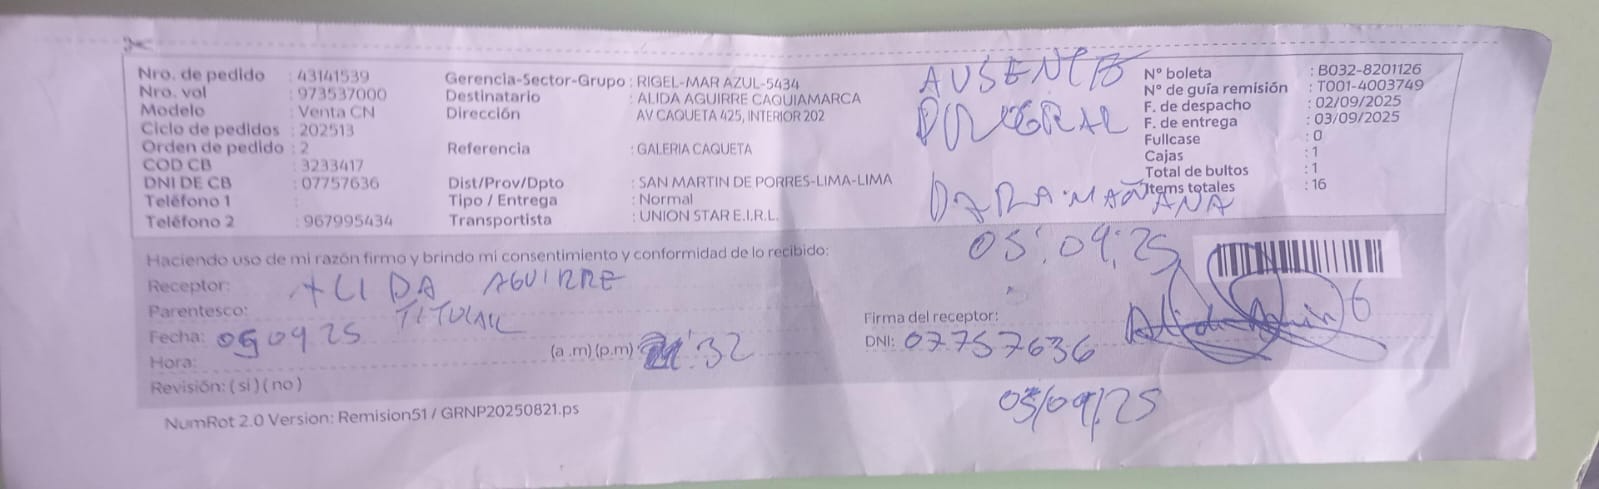 Nro. de pedido : 43141539
Nro. vol : 973537000
Modelo : Venta CN
Ciclo de pedidos : 202513
Orden de pedido : 2
COD CB : 3233417
DNI DE CB : 07757636
Teléfono 1 :
Teléfono 2 : 967995434
Gerencia-Sector-Grupo : RIGEL-MAR AZUL-5434
Destinatario : ALIDA AGUIRRE CAQUIAMARCA
Dirección : AV CAQUETA 425, INTERIOR 202
Referencia : GALERIA CAQUETA
Dist/Prov/Dpto : SAN MARTIN DE PORRES-LIMA-LIMA
Tipo / Entrega : Normal
Transportista : UNION STAR E.I.R.L.
AUSENTE
PARA MAÑANA
05.09.25
N° boleta : B032-8201126
N° de guía remisión : T001-4003749
F. de despacho : 02/09/2025
F. de entrega : 03/09/2025
Fullcase : 0
Cajas : 1
Total de bultos : 1
Items totales : 16
Haciendo uso de mi razón firmo y brindo mi consentimiento y conformidad de lo recibido:
Receptor: ALIDA AGUIRRE
Parentesco: TITULAR
Fecha: 05 09 25
Hora: (a .m) (p.m) :32
Revisión: ( si ) ( no )
Firma del receptor:
DNI: 07757636
05/09/25
NumRot 2.0 Version: Remision51 / GRNP20250821.ps